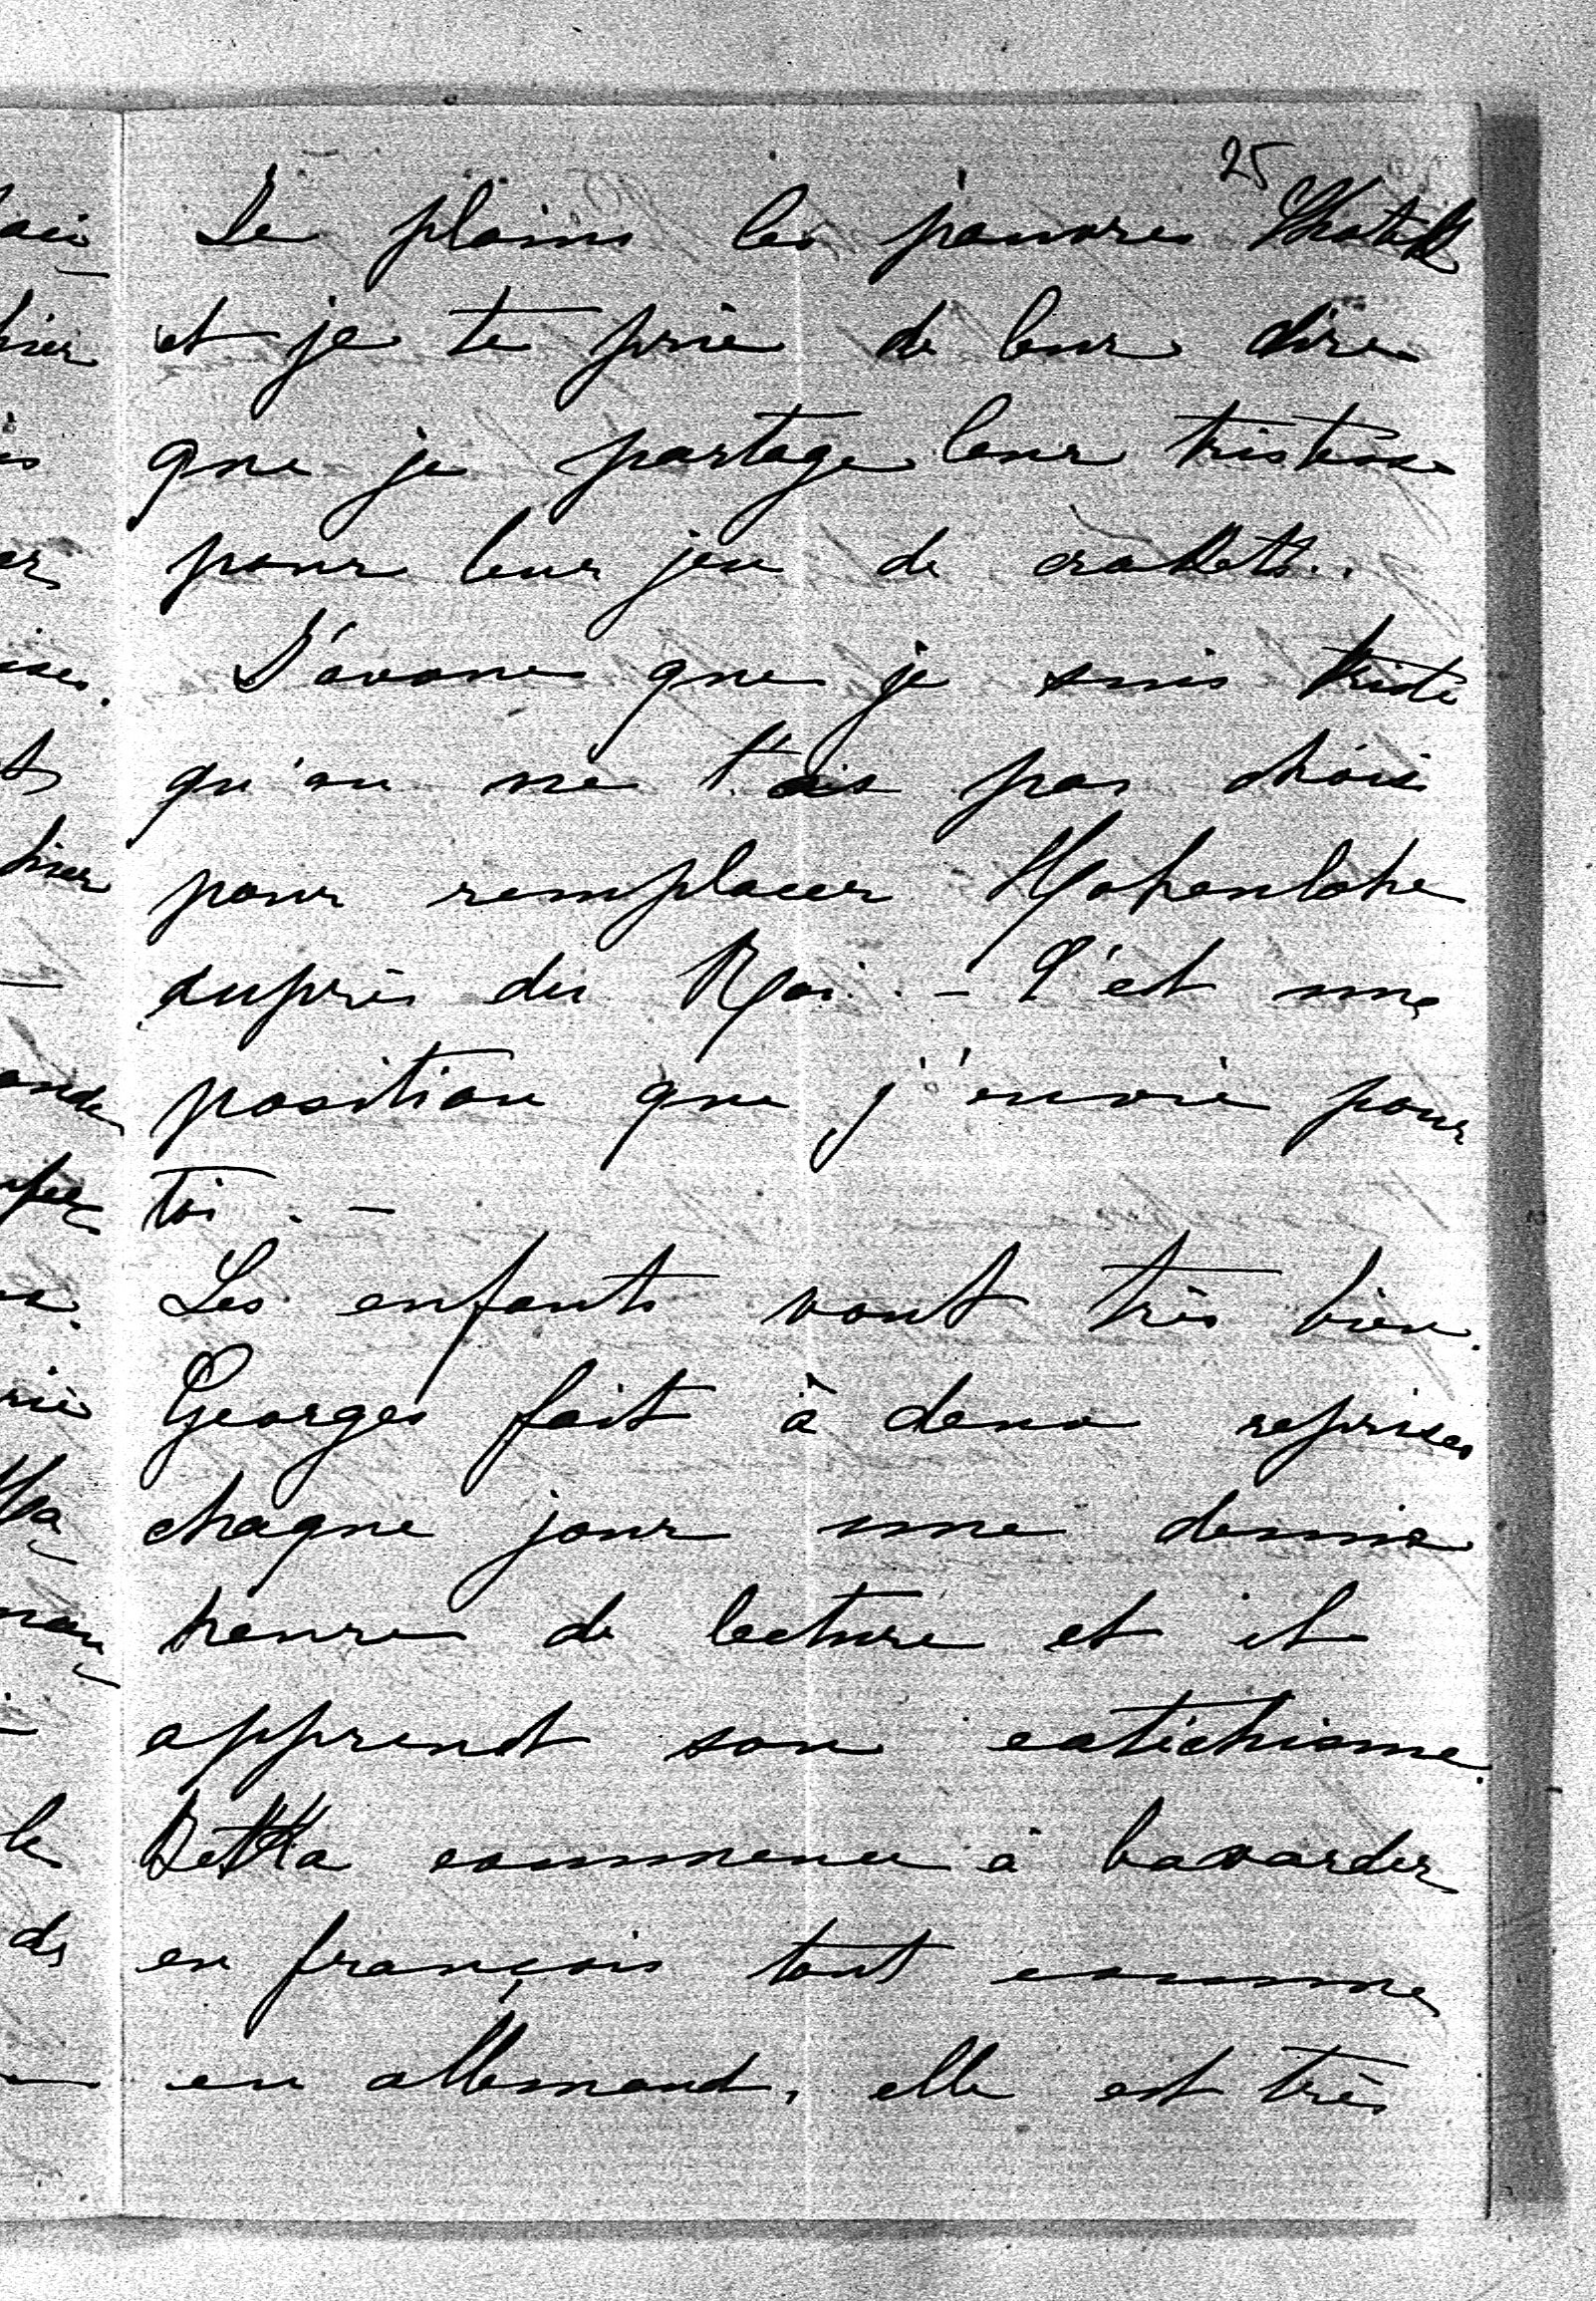 25
Je plains les pauvres
et je te prie de leur dire
que je partage leur tristesse
pour leur jeu de
J'avoue que je suis triste
qu'on ne t'ais pas choisi
pour remplacer Hohenlohe
auprès du Roi. - C'est une
position que j'envie pour
toi. -
Les enfants vont très bien.
Georges fait à deux reprises
chaque jour une demie
heure de lecture et il
apprend son catéchisme.
commence à bavarder
en français tout comme
en allemand, elle est très